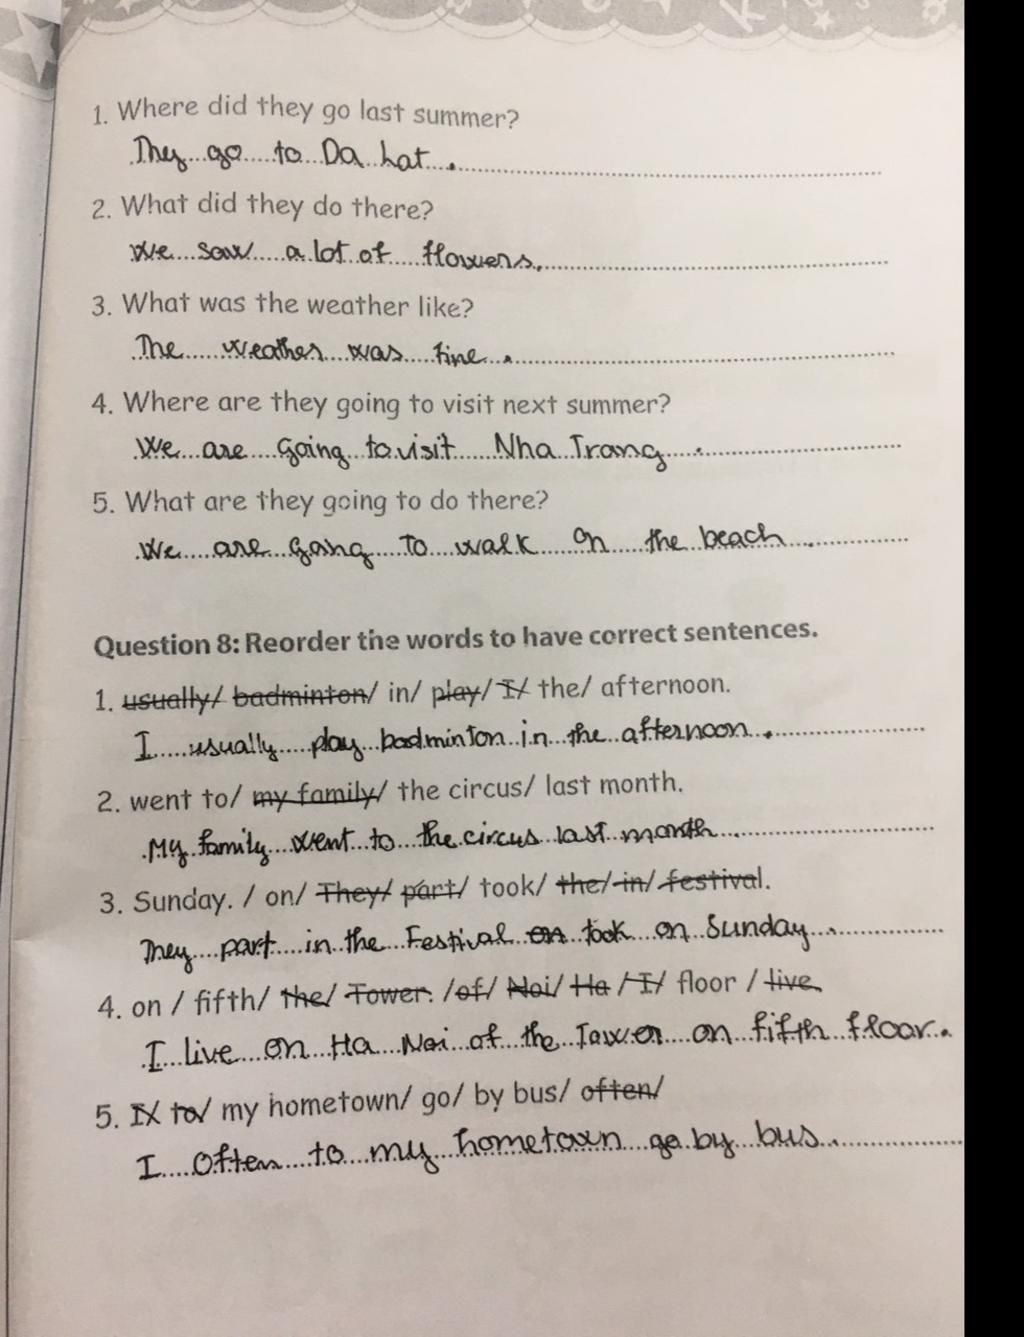 1. Where did they go last summer?
They go to Da Lat.
2. What did they do there?
We saw a lot of flowers.
3. What was the weather like?
The weather was fine.
4. Where are they going to visit next summer?
We are going to visit Nha Trang.
5. What are they going to do there?
We are going to walk on the beach.
Question 8: Reorder the words to have correct sentences.
1. usually/ badminton/ in/ play/ I/ the/ afternoon.
I usually play badminton in the afternoon.
2. went to/ my family/ the circus/ last month.
My family went to the circus last month.
3. Sunday. / on/ They/ part/ took/ the/ in/ festival.
They part in the Festival on took on Sunday.
4. on / fifth/ the/ Tower. /of/ Noi/ Ha / I/ floor / live
I live on Ha Noi of the Tower on fifth floor.
5. I/ to/ my hometown/ go/ by bus/ often/
I often to my hometown go by bus.